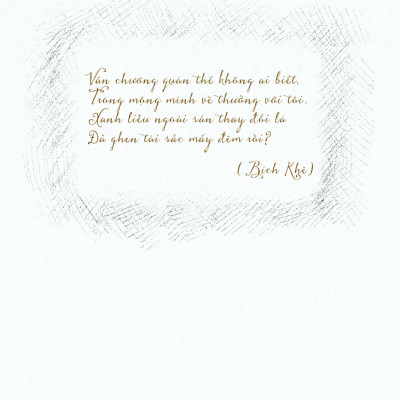 Văn chương quán thế không ai biết.
Trong mộng mình về thưởng với tài.
Xanh liễu ngoài sân thay đổi lá
Đã ghen tài sắc mấy đêm rồi?
(Bích Khê)